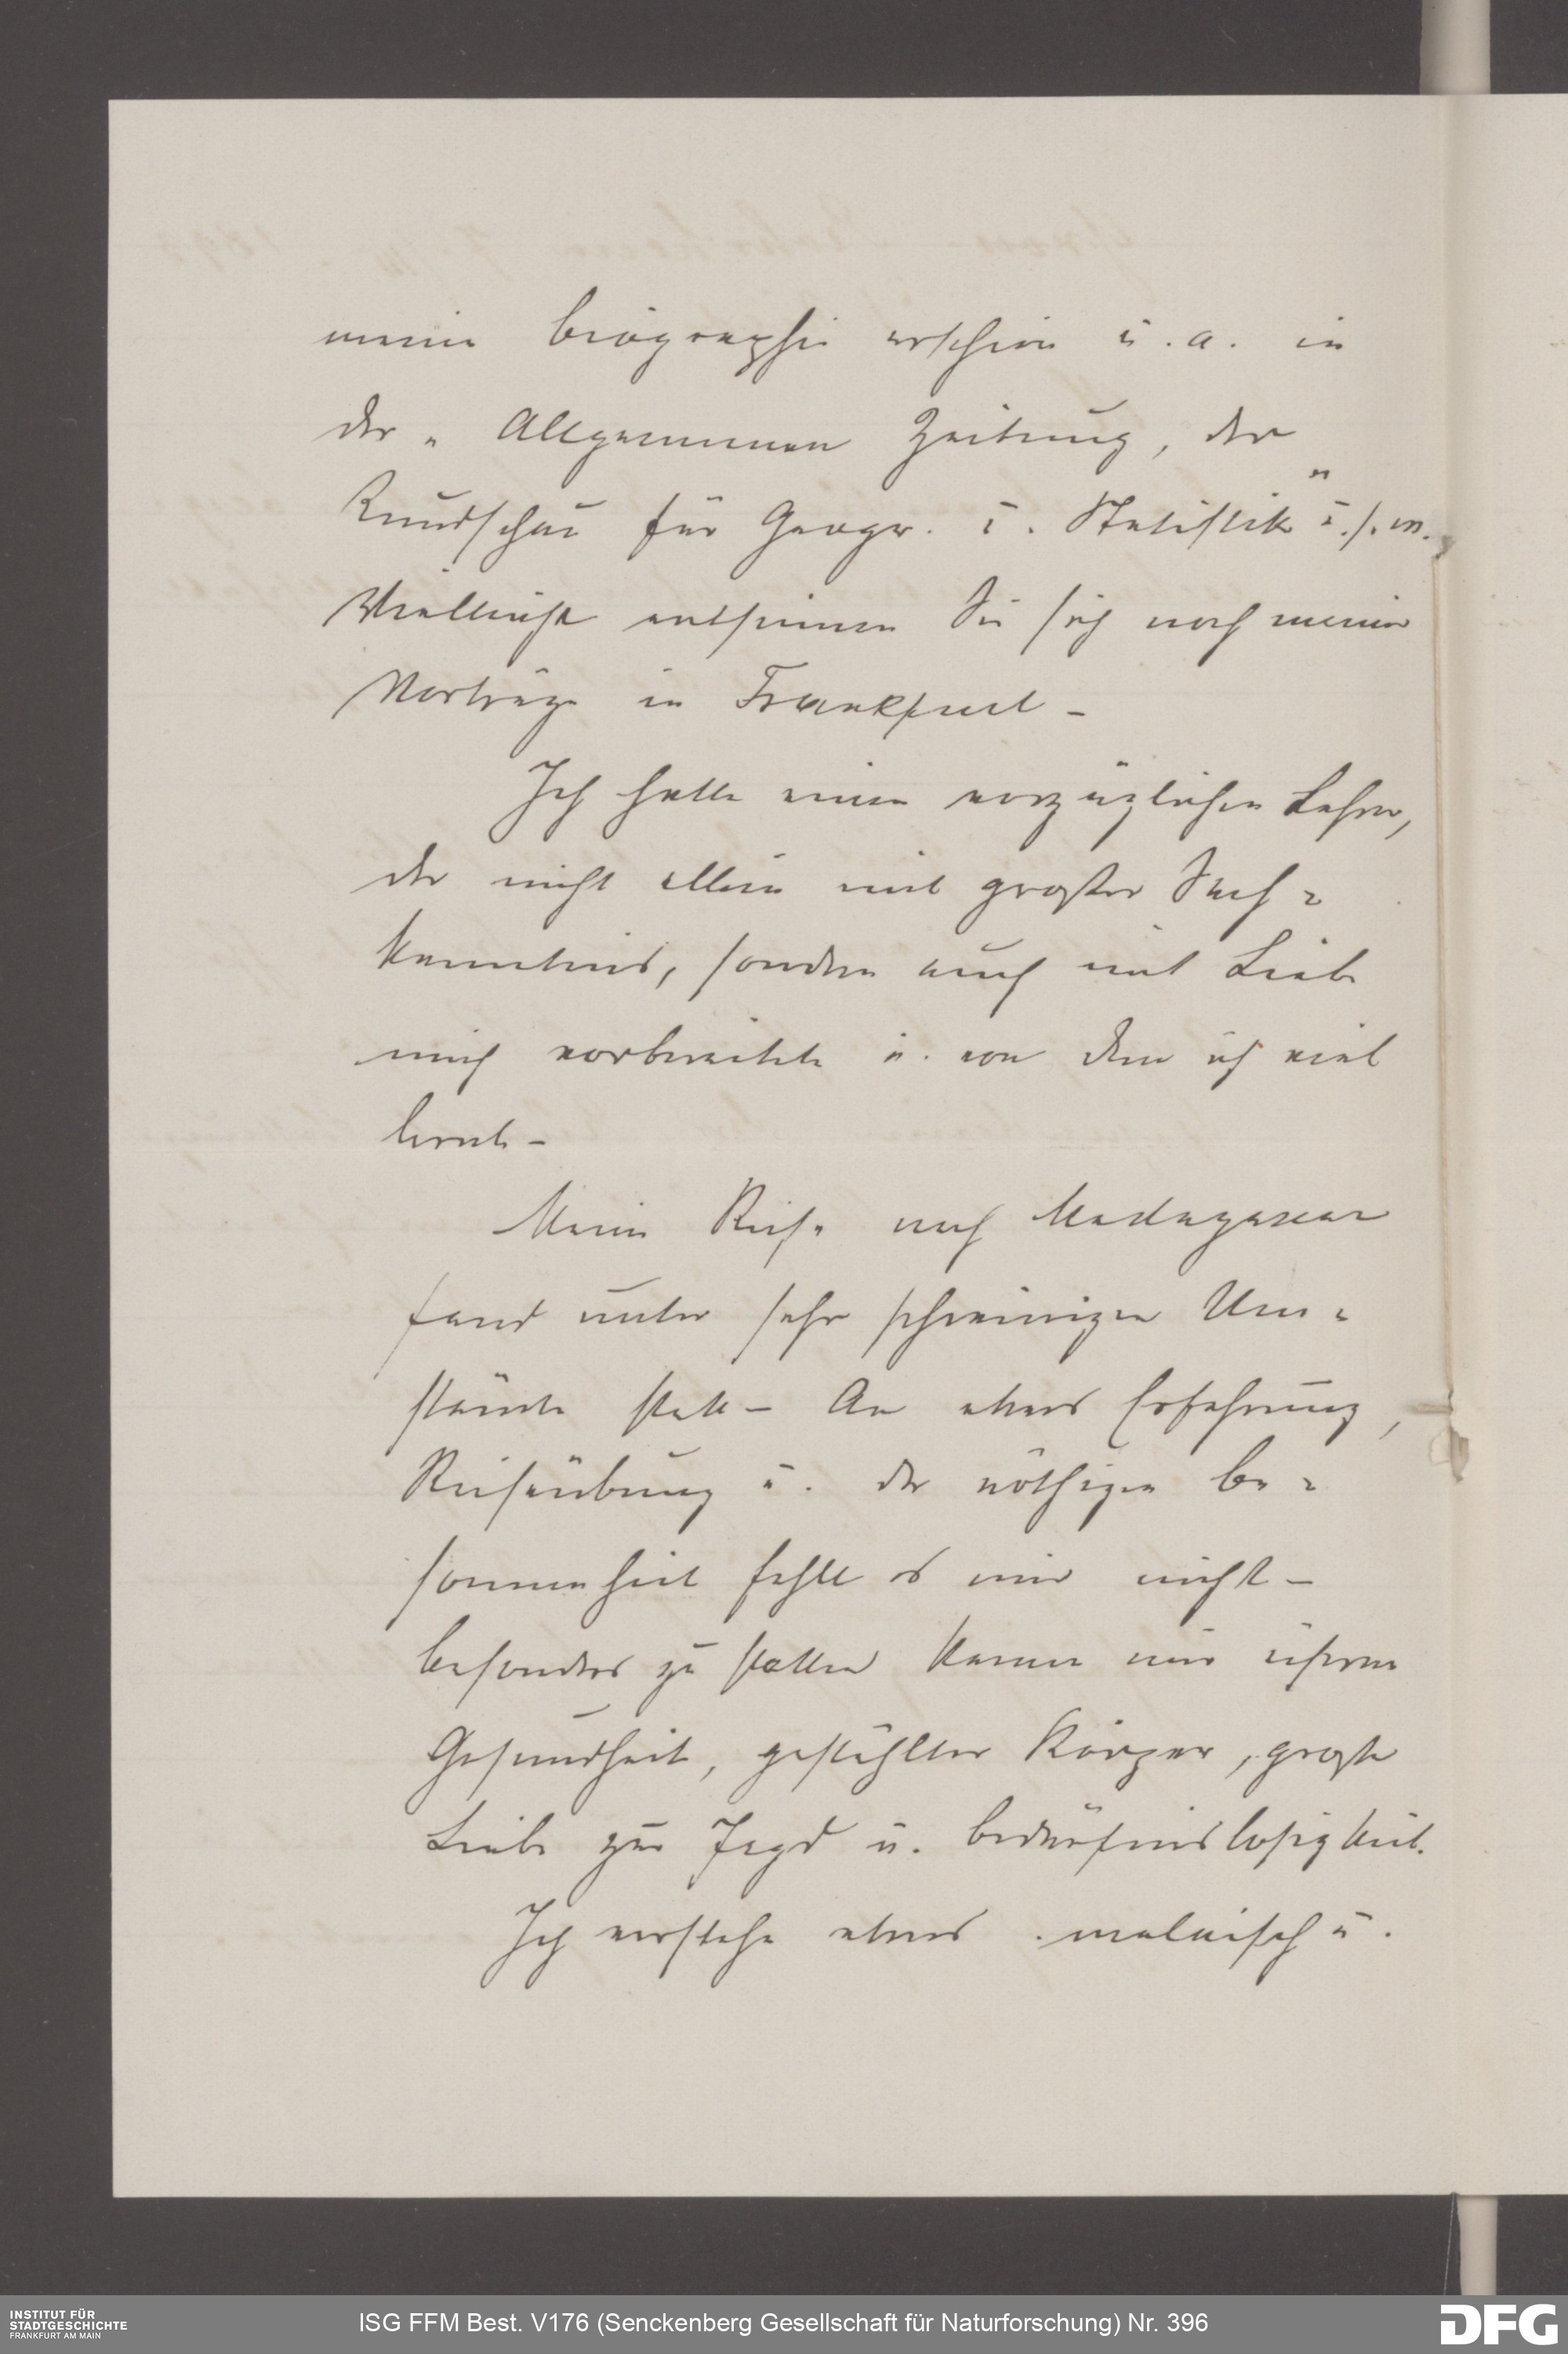 meine Biographie erschien u. a. in
der „Allgemeinen Zeitung, der
Rundschau für Geogr. u. Statistik“ u. s. w.
Vielleicht entsinnen Sie sich noch meiner
Vorträge in Frankfurt –
Ich hatte einen vorzüglichen Lehrer,
der nicht allein mit großer Sach-
kenntnis, sondern auch mit Liebe
mich vorbereitete u. von dem ich viel
lernte –
Meine Reise nach Madagascar
fand unter sehr schwierigen Um-
stände statt – An etwas Erfahrung,
Reiseübung u. der nöthigen Be-
sonnenheit fehlte es mir nicht –
besonders zu statten kamen mir
Gesundheit, gestählter Körper, große
Liebe zur Jagd u. Bedürfnislosigkeit.
Ich verstehe etwas malaiisch u.
INSTITUT FÜR
STADTGESCHICHTE
FRANKFURT AM MAIN
ISG FFM Best. V176 (Senckenberg Gesellschaft für Naturforschung) Nr. 396
DFG